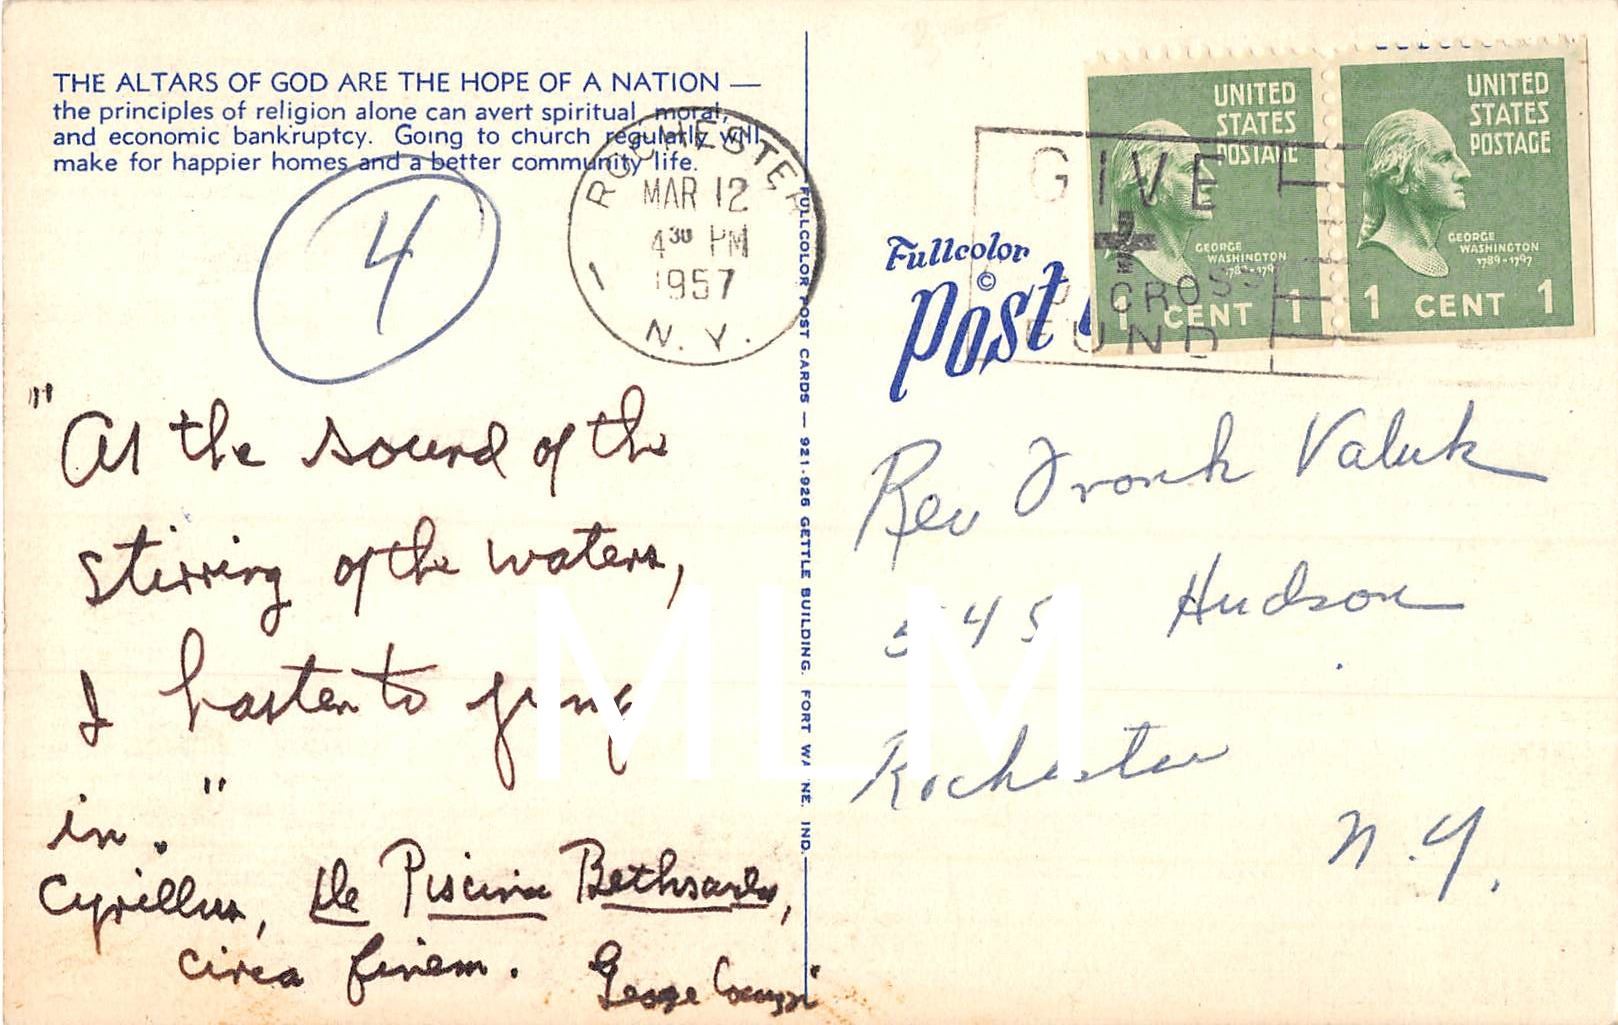 THE ALTARS OF GOD ARE THE HOPE OF A NATION —
the principles of religion alone can avert spiritual, moral,
and economic bankruptcy. Going to church regularly will
make for happier homes and a better community life.
4
ROCHESTER
MAR 12
4 30 PM
1957
1
N. Y.
GIVE
CROSS
FUND
UNITED
STATES
POSTAGE
GEORGE
WASHINGTON
1789-1797
1 CENT 1
UNITED
STATES
POSTAGE
GEORGE
WASHINGTON
1789-1797
1 CENT 1
Fullcolor
©
Post
FULLCOLOR POST CARDS — 921-926 GETTLE BUILDING. FORT WAYNE, IND.
"At the sound of the
stirring of the waters,
I hasten to jump
in."
Cyrillus, De Piscina Bethsaida,
circa finem. George
Rev Frank Valuk
545 Hudson
Rochester
N.Y.
MLM